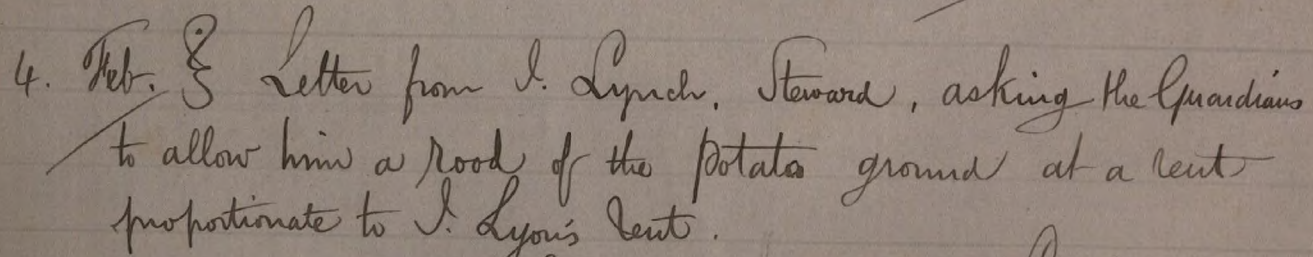 4. Feb. } Letter from J. Lynch, Steward, asking the Guardians
to allow him a rood of the potato ground at a rent
proportionate to J. Lyon's rent.